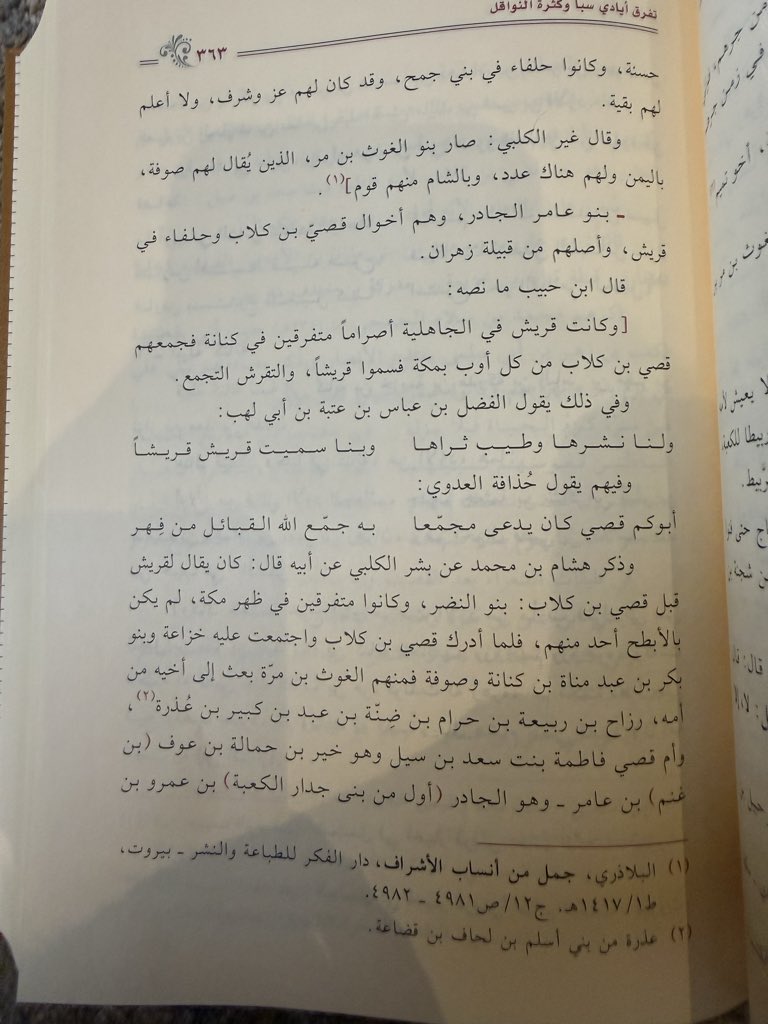 تفرق أيادي سبأ وكثرة النواقل
٣٦٣
حسنة، وكانوا حلفاء في بني جمح، وقد كان لهم عز وشرف، ولا أعلم
لهم بقية.
وقال غير الكلبي: صار بنو الغوث بن مر، الذين يُقال لهم صوفة،
باليمن ولهم هناك عدد، وبالشام منهم قوم](١).
ـ بنو عامر الجادر، وهم أخوال قصيّ بن كلاب وحلفاء في
قريش، وأصلهم من قبيلة زهران.
قال ابن حبيب ما نصه:
[وكانت قريش في الجاهلية أصراماً متفرقين في كنانة فجمعهم
قصي بن كلاب من كل أوب بمكة فسموا قريشاً، والتقرش التجمع.
وفي ذلك يقول الفضل بن عباس بن عتبة بن أبي لهب:
ولنا نشرها وطيب ثراها وبنا سميت قريش قريشاً
وفيهم يقول حُذافة العدوي:
أبوكم قصي كان يدعى مجمّعا به جمّع الله القبائل من فِهر
وذكر هشام بن محمد عن بشر الكلبي عن أبيه قال: كان يقال لقريش
قبل قصي بن كلاب: بنو النضر، وكانوا متفرقين في ظهر مكة، لم يكن
بالأبطح أحد منهم، فلما أدرك قصي بن كلاب واجتمعت عليه خزاعة وبنو
بكر بن عبد مناة بن كنانة وصوفة فمنهم الغوث بن مرّة بعث إلى أخيه من
أمه، رزاح بن ربيعة بن حرام بن ضِنّة بن عبد بن كبير بن عُذرة(٢)،
وأم قصي فاطمة بنت سعد بن سيل وهو خير بن حمالة بن عوف (بن
غنم) بن عامر ـ وهو الجادر (أول من بنى جدار الكعبة) بن عمرو بن
(١) البلاذري، جمل من أنساب الأشراف، دار الفكر للطباعة والنشر ـ بيروت،
ط١/١٤١٧هـ. ج١٢/ص٤٩٨١ ـ ٤٩٨٢.
(٢) عذرة من بني أسلم بن لحاف بن قضاعة.